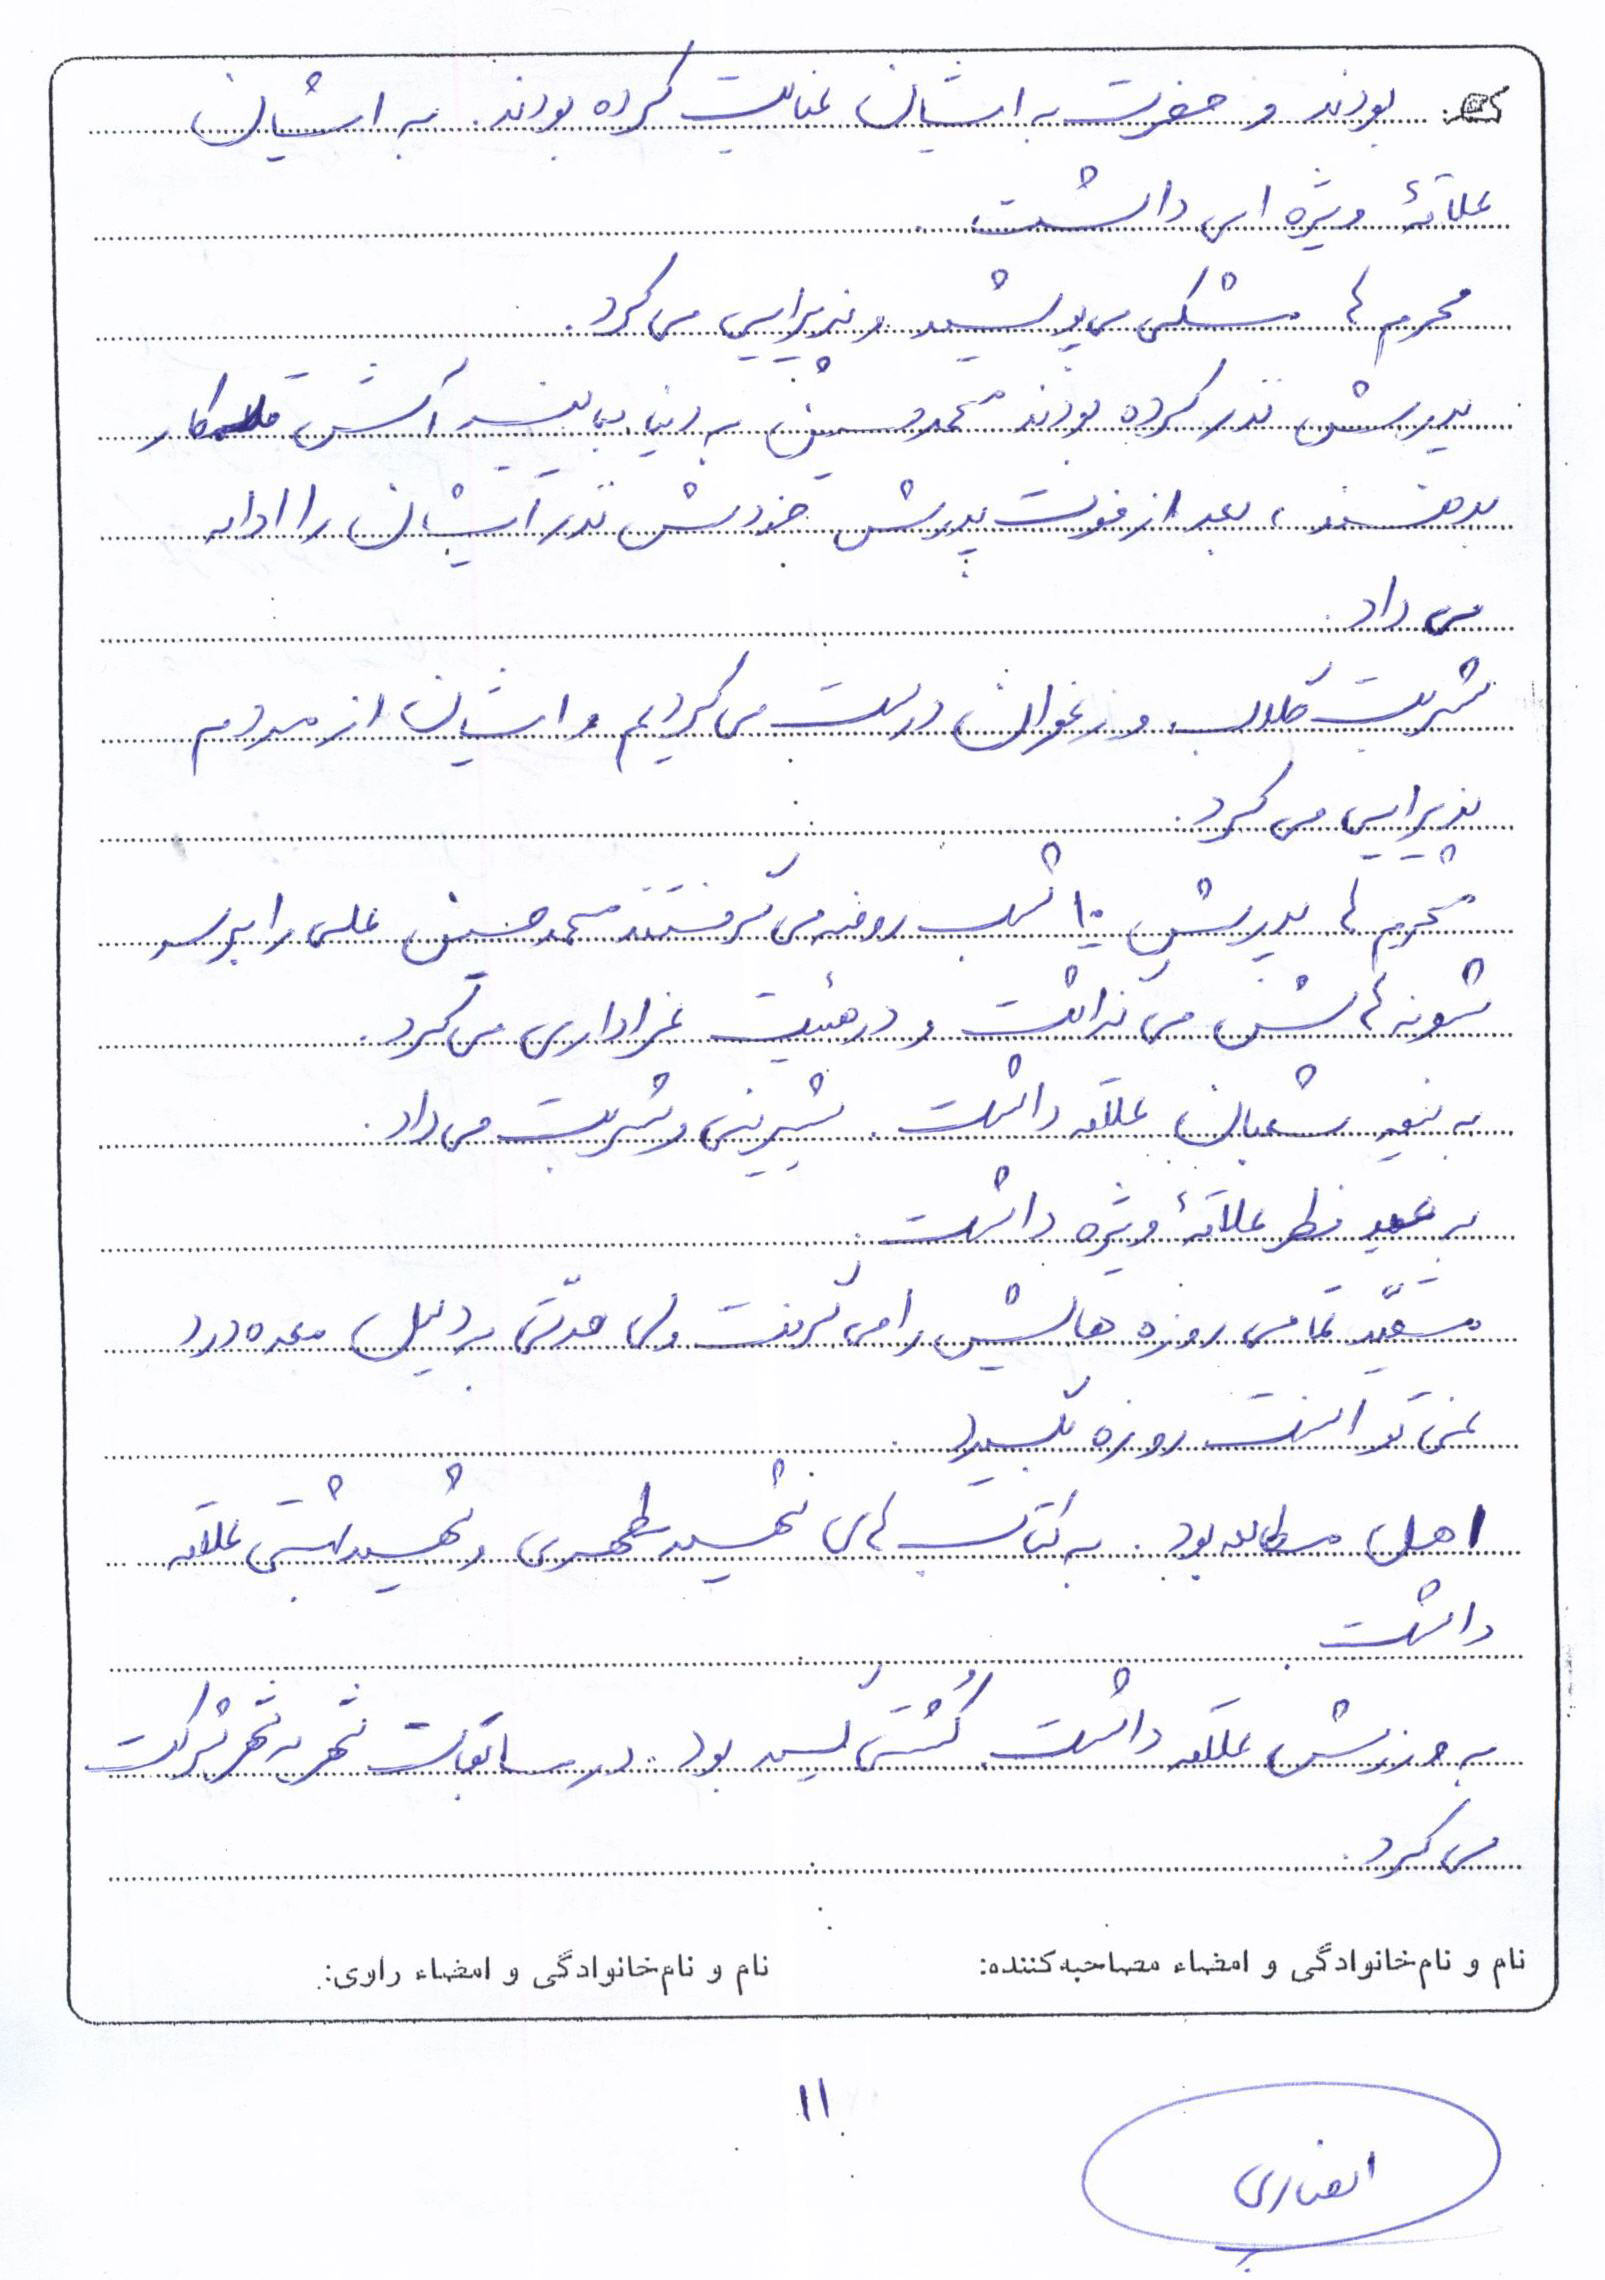 بودند و حضرت به ایشان عنایت کرده بودند. به ایشان
علاقهٔ ویژه ای داشت.
محرم ها مشکی می پوشید و پذیرایی می کرد.
پدرش نذر کرده بودند محمدحسین به دنیا بیاید آش قلمکار
بدهند، بعد از فوت پدرش خودش نذر ایشان را ادامه
می داد.
شربت گلاب و زعفران درست می کردیم و ایشان از مردم
پذیرایی می کرد.
محرم ها پدرش ۱۰ شب روضه می گرفتند محمدحسین علی را بر سر
شونه هاش می گذاشت و در هیئت عزاداری می کرد.
به نیمه شعبان علاقه داشت. شیرینی و شربت می داد.
به عید فطر علاقهٔ ویژه داشت.
مقیّد تمامی روزه هایش را می گرفت ولی مدّتی به دلیل معده درد
نمی توانست روزه بگیرد.
اهل مطالعه بود. به کتاب های شهید مطهری و شهید بهشتی علاقه
داشت.
به ورزش علاقه داشت. کُشتی گیر بود. در مسابقات شهر به شهر شرکت
می کرد.
نام و نام‌خانوادگی و امضاء مصاحبه‌کننده: نام و نام‌خانوادگی و امضاء راوی:
۱۱
انصاری